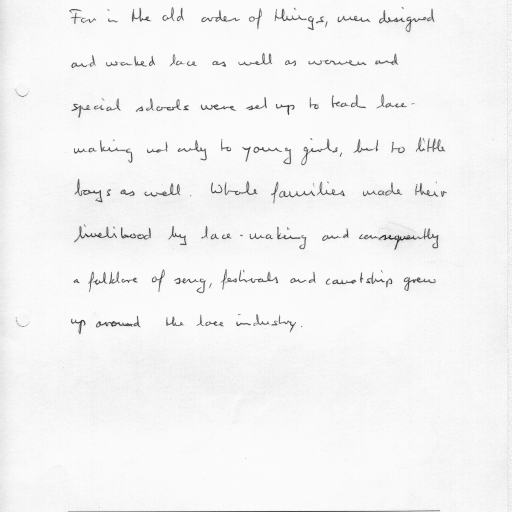 For in the old order of things, men designed
and worked lace as well as women and
special schools were set up to teach lace-
making not only to young girls, but to little
boys as well. Whole families made their
livelihood by lace-making and consequently
a folklore of song, festivals and courtship grew
up around the lace industry.